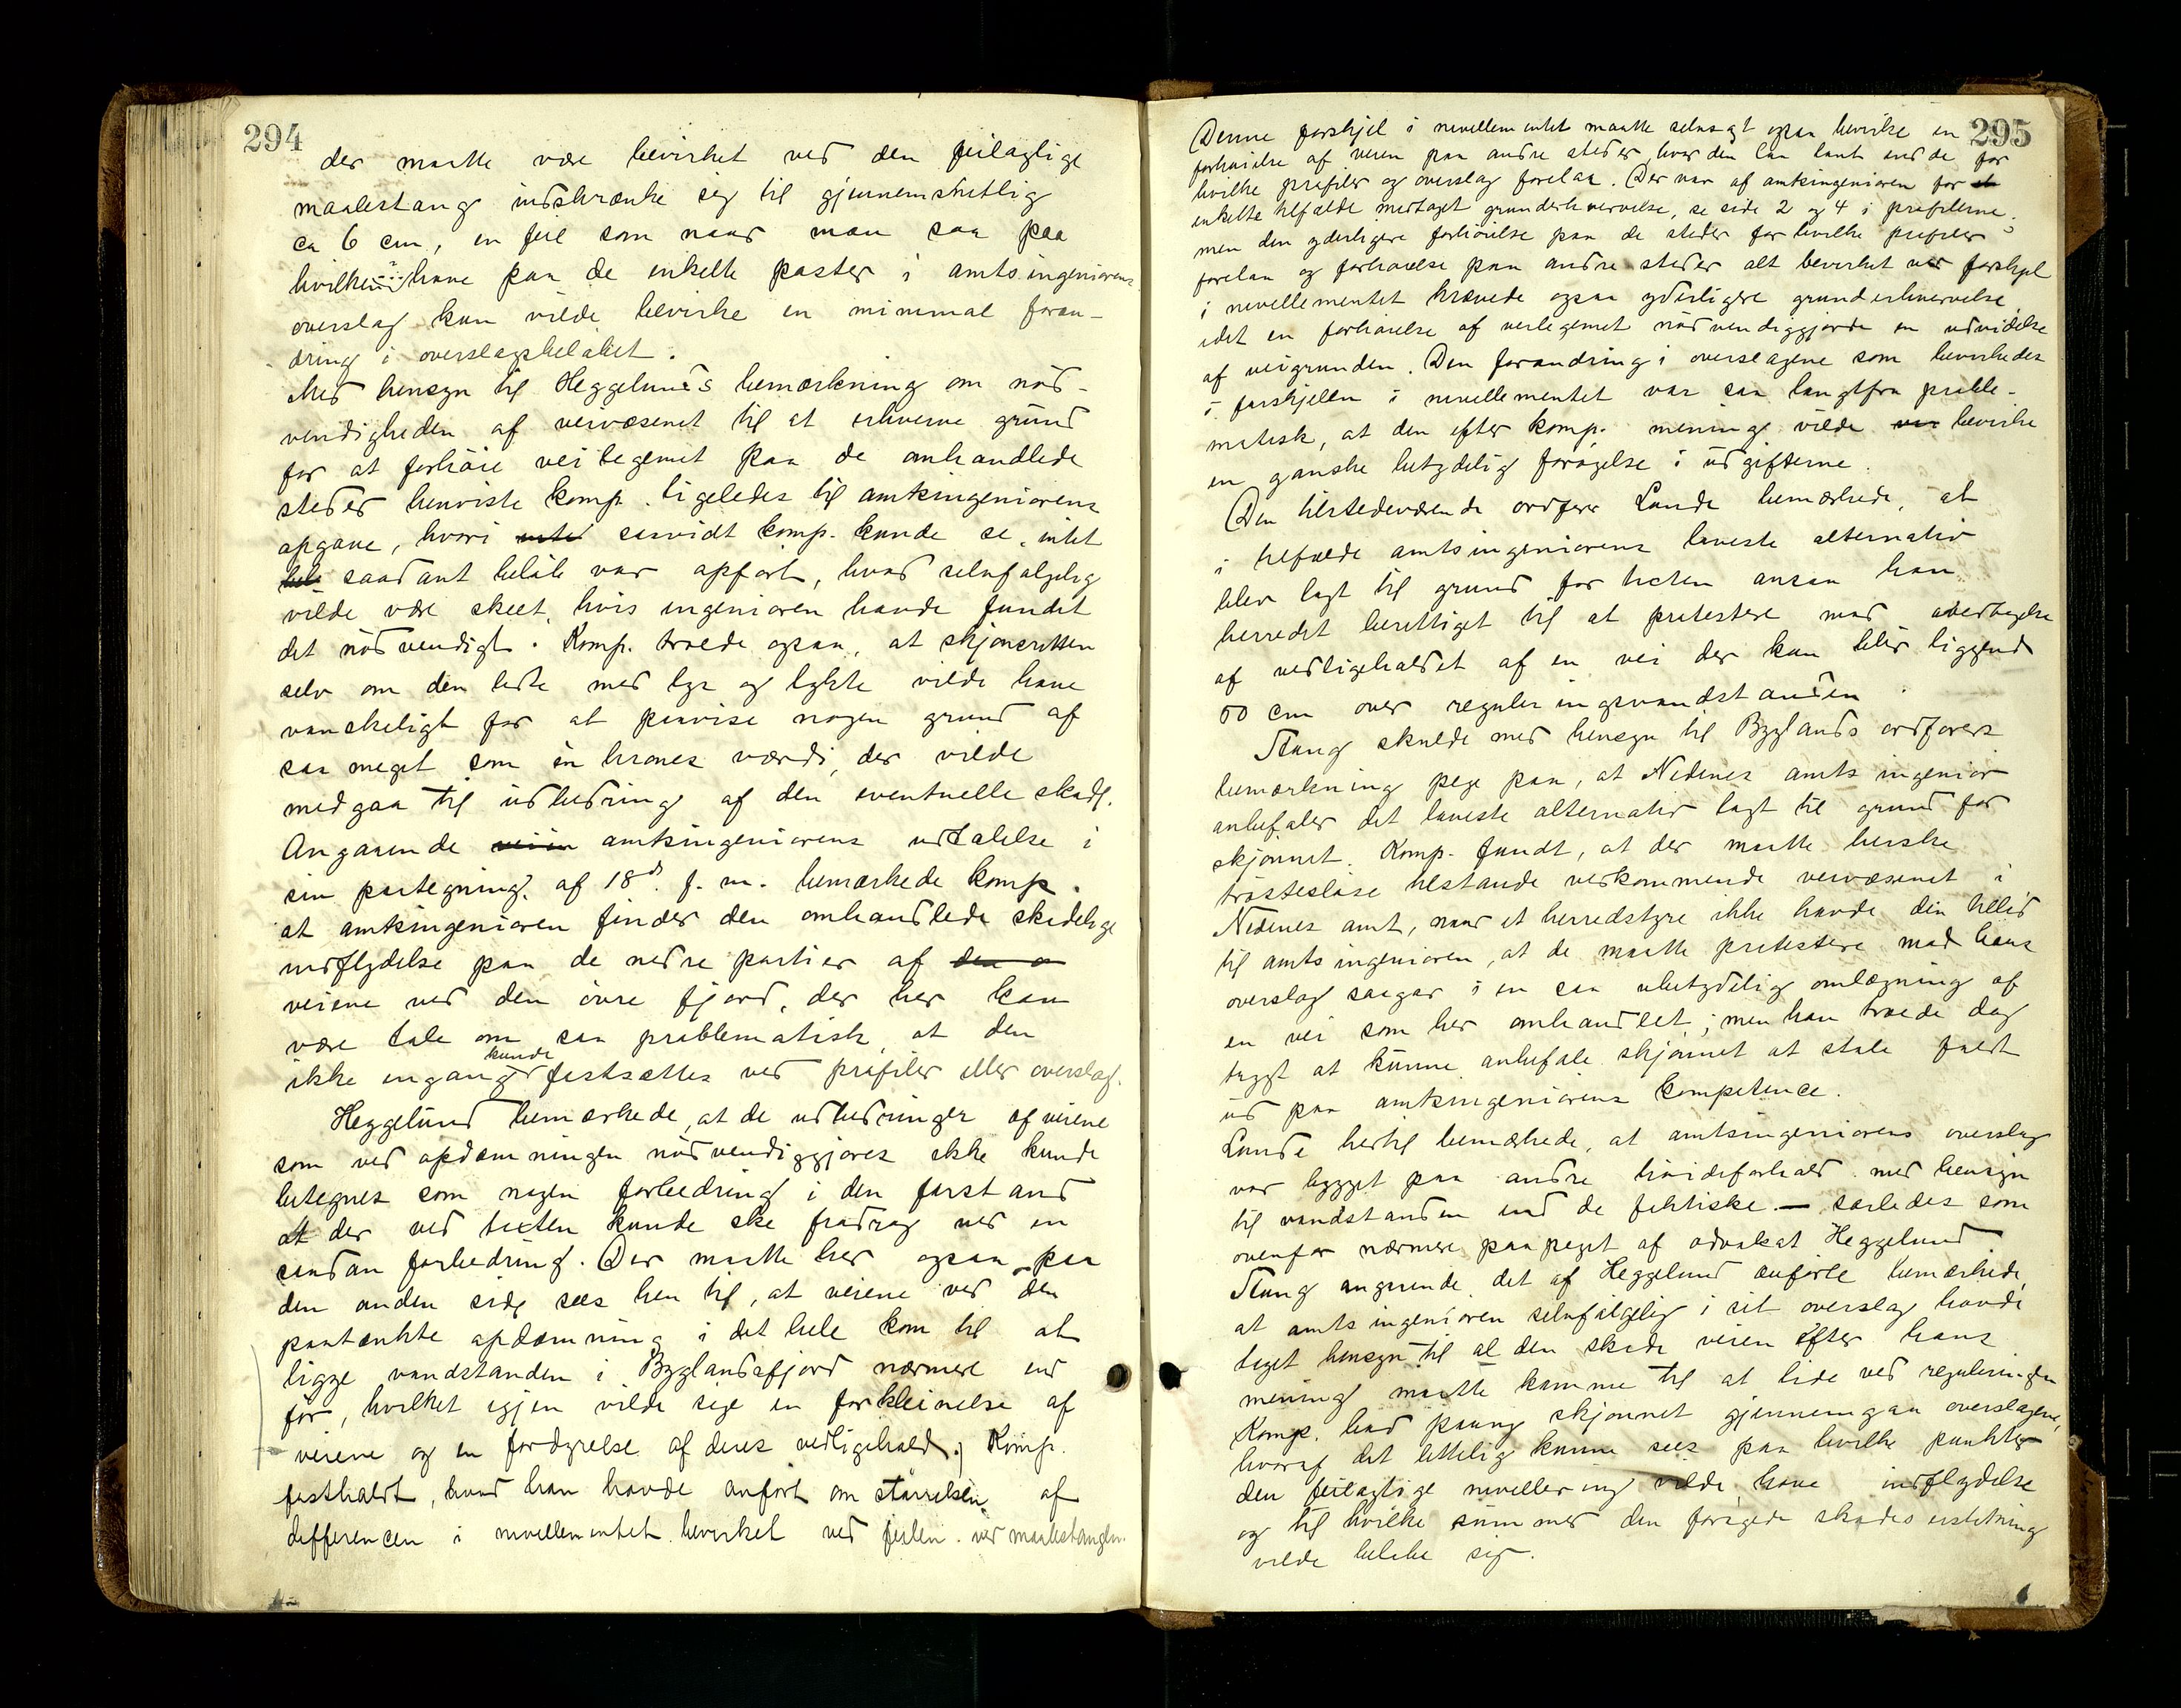 294
der maatte være bevirket ved den feilaglige
maalestang indskrænke sig til gjennemsnitlig
ca 6 cm, en feil som naar man saa paa
hvilken have paa de enkelte poster i amtsingeniørens
overslag kun vilde bevirke en minimal foran-
dring i overslagsbeløbet.
Med hensyn til Heggelunds bemærkning om nød-
vendigheden af veivæsenet til at erhverve grund
for at forhøie veilegemet paa de omhandlede
steder henviste komp. ligeledes til amtsingeniørens
opgave, hvori saavidt komp. kunde se, intet
saadant beløb var opført, hvad selvfølgelig
vilde være skeet, hvis ingeniøren havde fundet
det nødvendigt. Komp. troede ogsaa, at skjønsretten
selv om den lette med lys og lygte vilde have
vanskeligt for at paavise nogen grund af
saa meget som en krones værdi, der vilde
medgaa til udbedring af den eventuelle skade.
Angaaende amtsingeniørens udtalelse i
sin paategning af 18de f. m. bemærkede komp.
at amtsingeniøren finder den omhandlede skadelige
indflydelse paa de nedre partier af den o
veiene ved den øvre fjord, der her kan
være tale om saa problematisk, at den
ikke engang kunde fastsættes ved profiler eller overslag.
Heggelund bemærkede, at de udbedringer af veiene
som ved opdæmningen nødvendiggjøres ikke kunde
betegnes som nogen forbedring i den forstand
at der ved taxten kunde ske fradrag ved en
saadan forbedring. Der maatte her ogsaa paa
den anden side sees hen til, at veiene ved den
paatænkte opdæmning i det hele kom til at
ligge vandstanden i Byglandsfjord nærmere end
før, hvilket igjen vilde sige en forkleinelse af
veiene og en fordyrelse af deres vedligehold. Komp.
fastholdt, hvad han havde anført om størrelsen af
differencen i nivellementet bevirket ved feilen ved maalestangen.
295
Denne forskjel i nivellementet maatte selvsagt ogsaa bevirke en
forhøielse af veien paa andre steder, hvor den laa lavt end de for
hvilke profiler og overslag forelaa. Der var af amtsingeniøren for
enkelte tilfælde medtaget grunderhvervelse, se side 2 og 4 i profilerne,
men den yderligere forhøielse paa de steder for hvilke profiler
forelaa og forhøielse paa andre steder alt bevirket ved forskjel
i nivellementet krævede ogsaa yderligere grunderhvervelse,
idet en forhøielse af veilegemet nødvendiggjorde en udvidelse
af veigrunden. Den forandring i overslagene som bevirkedes
i forskjellen i nivellementet var saa langtfra proble-
matisk, at den efter komp. mening vilde bevirke
en ganske betydelig forøgelse i udgifterne.
Den tilstedeværende ordfører Lunde bemærkede, at
i tilfælde amtsingeniørens laveste alternativ
blev lagt til grund for taxten ansaa han
herredet berettiget til at protestere mod overtagelse
af vedligeholdet af en vei der kun blir liggende
50 cm over reguleringsvandstanden.
Stang skulde med hensyn til Byglands ordførers
bemærkning pege paa, at Nedenes amts ingeniør
anbefaler det laveste alternativ lagt til grund for
skjønnet. Komp. fandt, at der maatte herske
trøstesløse tilstande vedkommende veivæsenet i
Nedenes amt, naar et herredstyre ikke havde den tillid
til amtsingeniøren, at de maatte protestere mod hans
overslag saagar i en saa ubetydelig omlægning af
en vei som her omhandlet; men han troede dog
trygt at kunne anbefale skjønnet at stole fuldt
ud paa amtsingeniørens kompetence.
Lunde hertil bemærkede, at amtsingeniørens overslag
var bygget paa andre høideforhold med hensyn
til vandstanden end de faktiske — saaledes som
ovenfor nærmere paapeget af advokat Heggelund.
Stang angaaende det af Heggelund anførte bemærkede,
at amtsingeniøren selvfølgelig i sit overslag havde
taget hensyn til al den skade veien efter hans
mening maatte komme til at lide ved reguleringen
Komp. bad paany skjønnet gjennemgaa overslagene,
hvoraf det lettelig kunne sees paa hvilke punkter
den feilagtige nivellering vilde have indflydelse
og til hvilke summer den forøgede skadeserstatning
vilde beløbe sig.